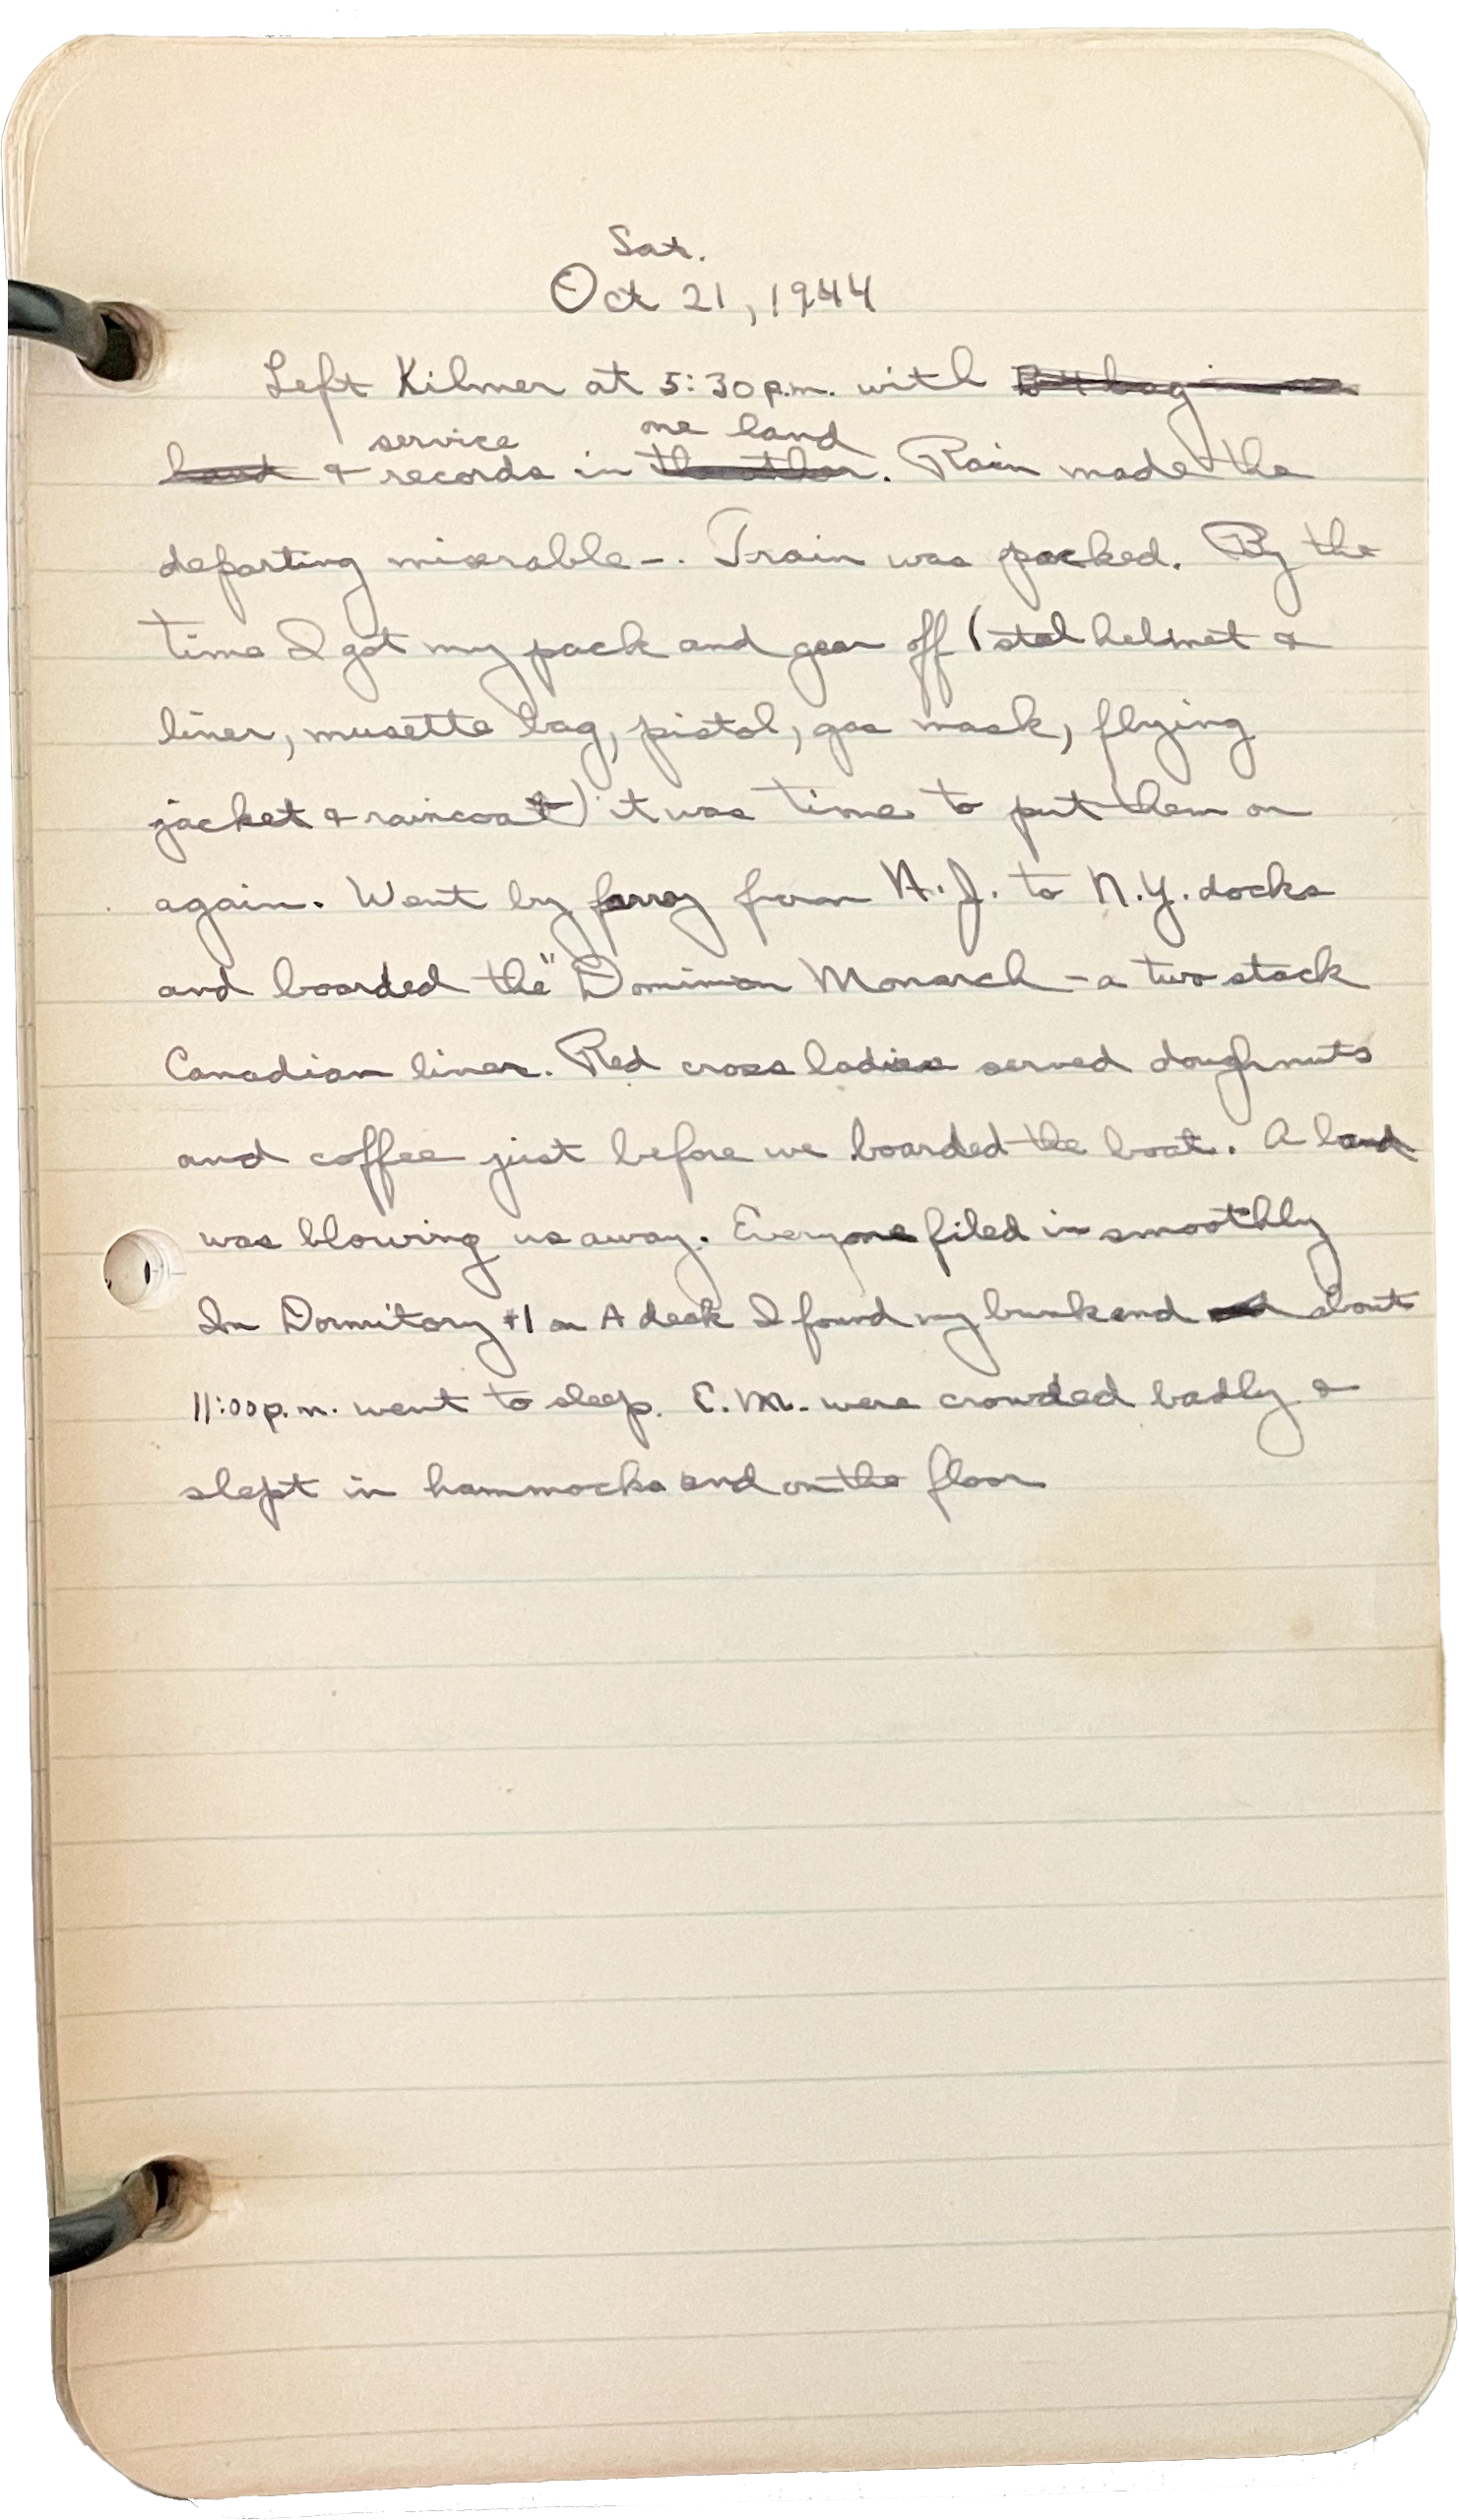 Sat.
Oct 21, 1944
Left Kilmer at 5:30 p.m. with B4 bag in one
service one hand
hand & records in the other. Rain made the
departing miserable -. Train was packed. By the
time I got my pack and gear off (steel helmet &
liner, musette bag, pistol, gas mask, flying
jacket & raincoat) it was time to put them on
again. Went by ferry from N.J. to N.Y. docks
and boarded the "Dominion Monarch - a two stack
Canadian liner. Red cross ladies served doughnuts
and coffee just before we boarded the boat. A band
was blowing us away. Everyone filed in smoothly
In Dormitory #1 on A deck I found my bunk and about
11:00 p.m. went to sleep. E.M. were crowded badly &
slept in hammocks and on the floor